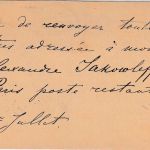 de renvoyer toute
adressée à mon
Alexandre Jakowleff
Paris poste restante
Juillet.